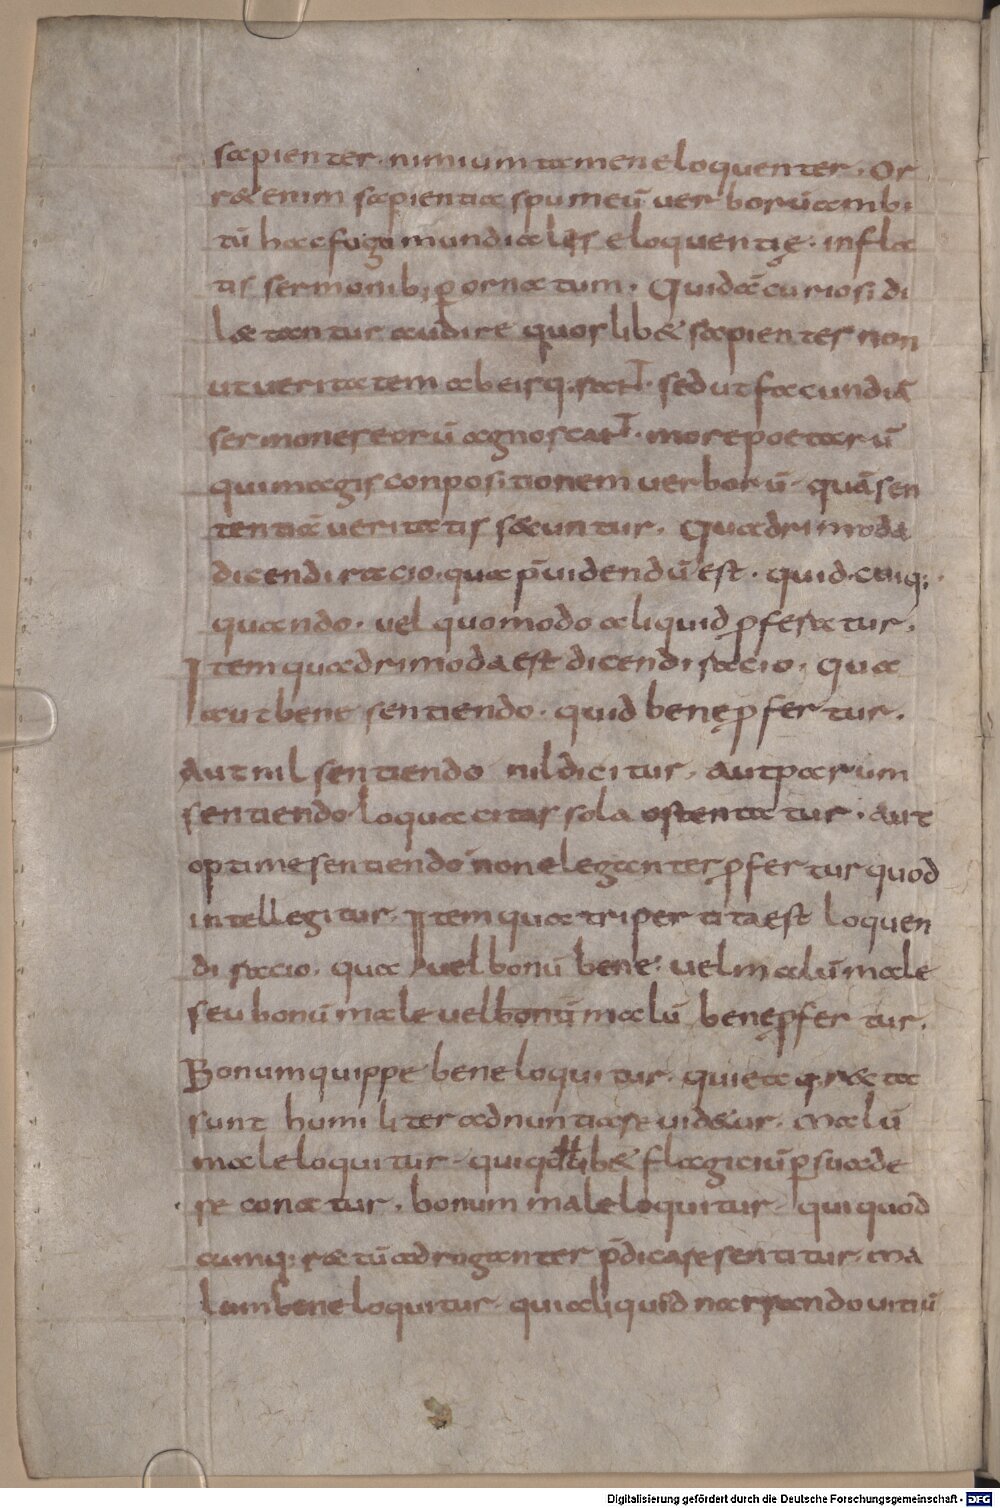 sapienter. nimium tamen eloquenter. or
ret enim sapientia spumeū uerborū ambi
tū hac fuga mundiales eloquentię. infla
tis sermonib; ꝑornatum. Quidā curiosi di
lætantur audire quoslib& sapientes non
ut ueritatem ab eis q̨rat. sed ut facundiā
sermones eorū agnoscat. more poetarū
qui magis conpositionem uerborū. quā sen
tentiā ueritatis secuntur. Quadrimoda
dicendi racio. qua p̄uidendū est. quid. cuiq;.
quando. uel quomodo aliquid ꝓferatur.
Item quadrimoda est dicendi racio. qua
aut bene sentiendo. quid bene ꝓfertur.
Aut nil sentiendo nil dicitur. Aut parum
sentiendo. loquacitas sola ostentatur. aut
optime sentiendo non eleganter ꝓfertur quod
intellegitur. Item qua tripertita est loquen
di racio. qua uel bonū bene. uel malū male
seu bonū male uel bonū malū bene ꝓfertur.
Bonum quippe bene loquitur. qui ea q̨ recta
sunt humiliter adnuntiare uidetur. malū
male loquitur. qui qdlib& flagiciū ꝑsuade
re conatur. bonum male loquitur. qui quod
cumq; ratū adroganter p̄dicare sentitur. ma
lum bene loquitur. qui aliquid narrando uitiū
Digitalisierung gefördert durch die Deutsche Forschungsgemeinschaft - DFG